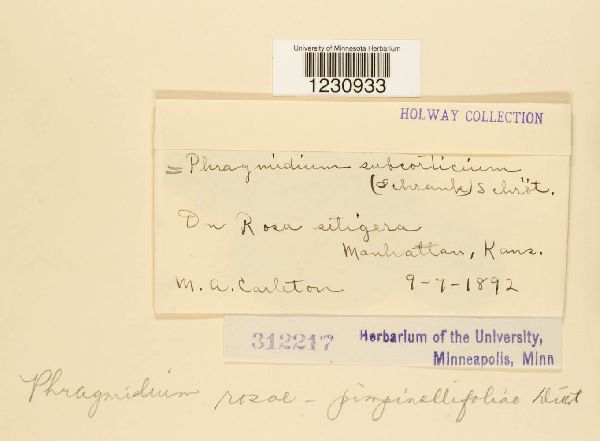 University of Minnesota Herbarium
1230933
HOLWAY COLLECTION
= Phragmidium subcorticium
(Schrank) Schröt.
On Rosa setigera
Manhattan, Kans.
M. A. Carleton 9-7-1892
312217 Herbarium of the University,
Minneapolis, Minn
Phragmidium rosae - pimpinellifoliae Diet